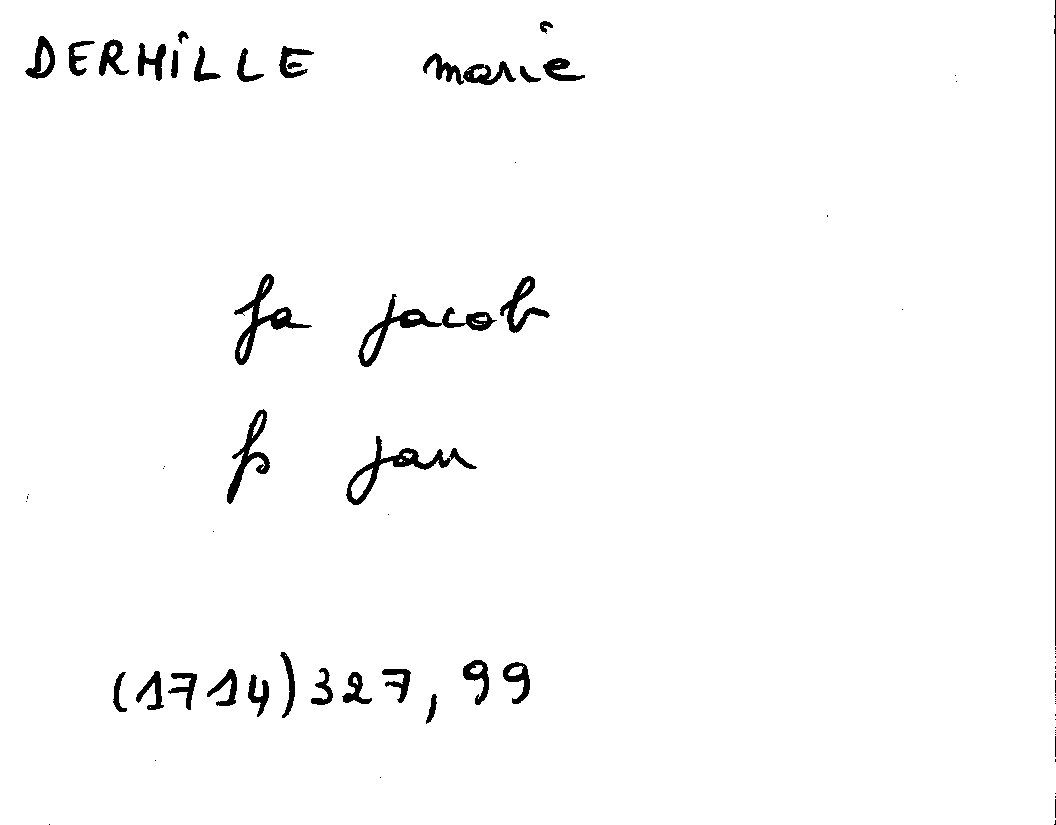 DERMILLE marie
fa jacob
fs jan
(1714) 327, 99